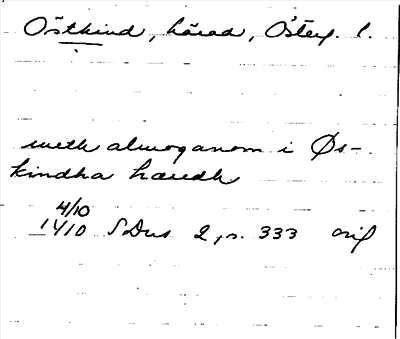 Östkind, härad, Österg. l.
meth almoganom i Øs-
kindha haredh
4/10
1410 SDns 2, s. 333 orig